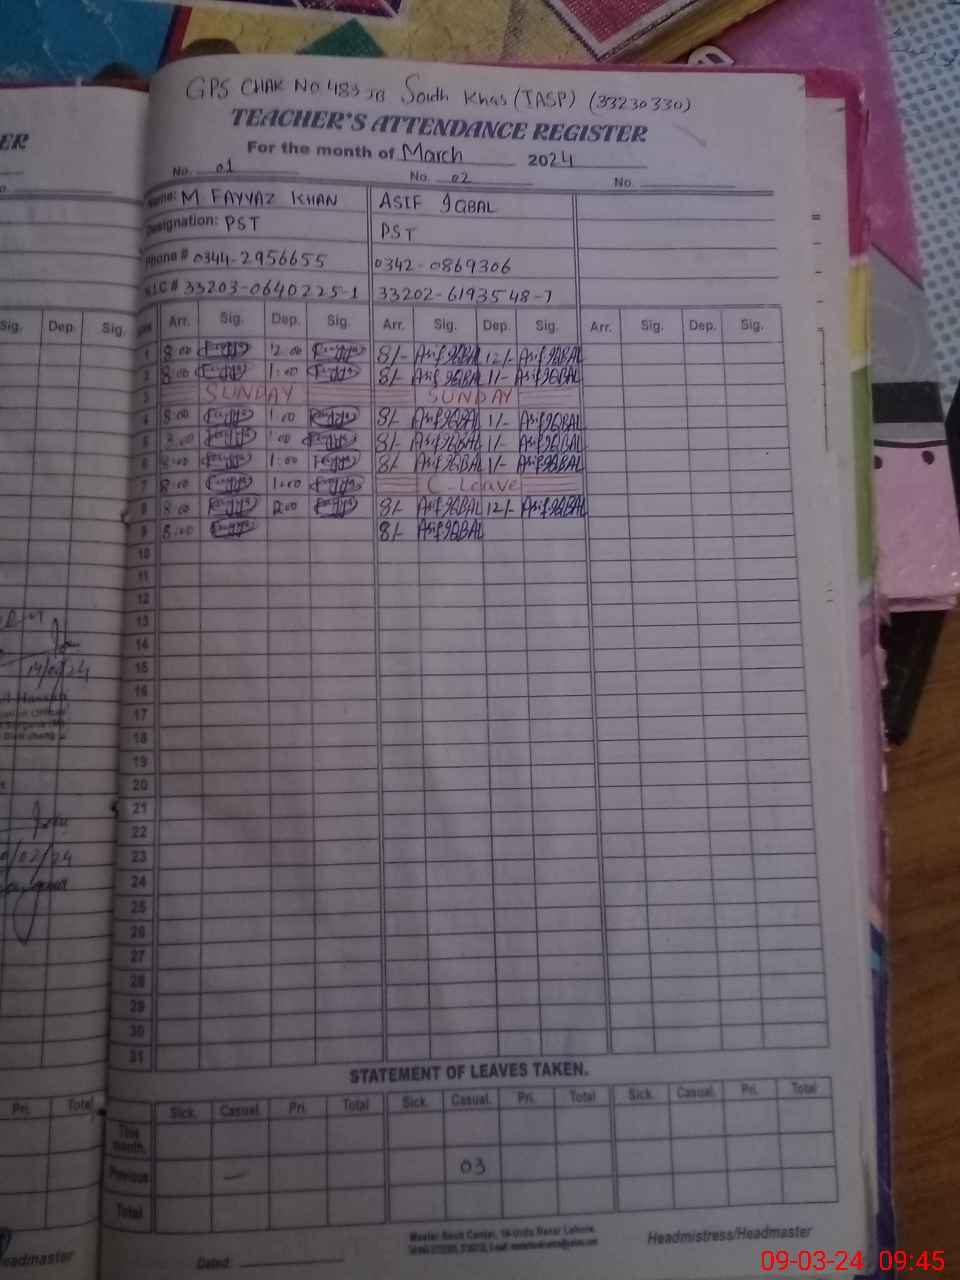 GPS CHAK NO 483 JB South Khas (TASP) (33230330)
ER
TEACHER'S ATTENDANCE REGISTER
For the month of March 2024
No. 01 No. 02 No.
Name: M FAYYAZ KHAN ASIF IQBAL
Designation: PST PST
Phone # 0344-2956655 0342-0869306
N.I.C # 33203-0640225-1 33202-6193548-7
Sig. Dep. Sig. Arr. Sig. Dep. Sig. Arr. Sig. Dep. Sig. Arr. Sig. Dep. Sig.
1 8:00 Fayyaz 12:00 Fayyaz 8/- Asif IQBAL 12/- Asif IQBAL
2 8:00 Fayyaz 1:00 Fayyaz 8/- Asif IQBAL 1/- Asif IQBAL
3 SUNDAY SUNDAY
4 8:00 Fayyaz 1:00 Fayyaz 8/- Asif IQBAL 1/- Asif IQBAL
5 8:00 Fayyaz 1:00 Fayyaz 8/- Asif IQBAL 1/- Asif IQBAL
6 8:00 Fayyaz 1:00 Fayyaz 8/- Asif IQBAL 1/- Asif IQBAL
7 8:00 Fayyaz 1:00 Fayyaz C-Leave
8 8:00 Fayyaz 12:00 Fayyaz 8/- Asif IQBAL 12/- Asif IQBAL
9 8:00 Fayyaz 8/- Asif IQBAL
10
11
12
13
14
15
16
17
18
19
20
21
22
23
24
25
26
27
28
29
30
31
STATEMENT OF LEAVES TAKEN.
Pri. Total Sick. Casual. Pri. Total Sick. Casual. Pri. Total Sick. Casual. Pri. Total
This month.
Previous — 03
Total
Master Book Center, Urdu Bazar Lahore.
Headmaster Dated: Headmistress/Headmaster
09-03-24 09:45